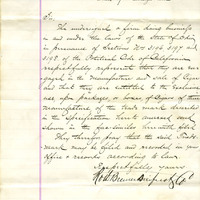 The undersigned a firm doing business
in and under the laws of the State of
in pursuance of Sections No 3196 3197 and
3198 of the Political Code of California
respectfully represents they are en-
gaged in the manufacture and sale of Cigars
and that they are entitled to the exclusive
use upon packages, or boxes of Cigars of
manufacture of the trade mark described
in the Specification hereto annexed and
shown in the fac-similes herewith filed
They therefore pray that the said Trade
mark may be filed and recorded in your
Office & records according to law.
Respectfully yours